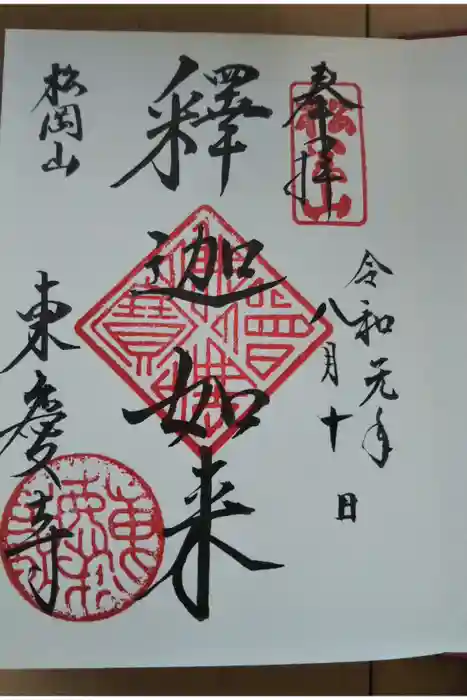 奉拝
松岡山
令和元年
八月十日
釋迦如来
松岡山
東慶寺